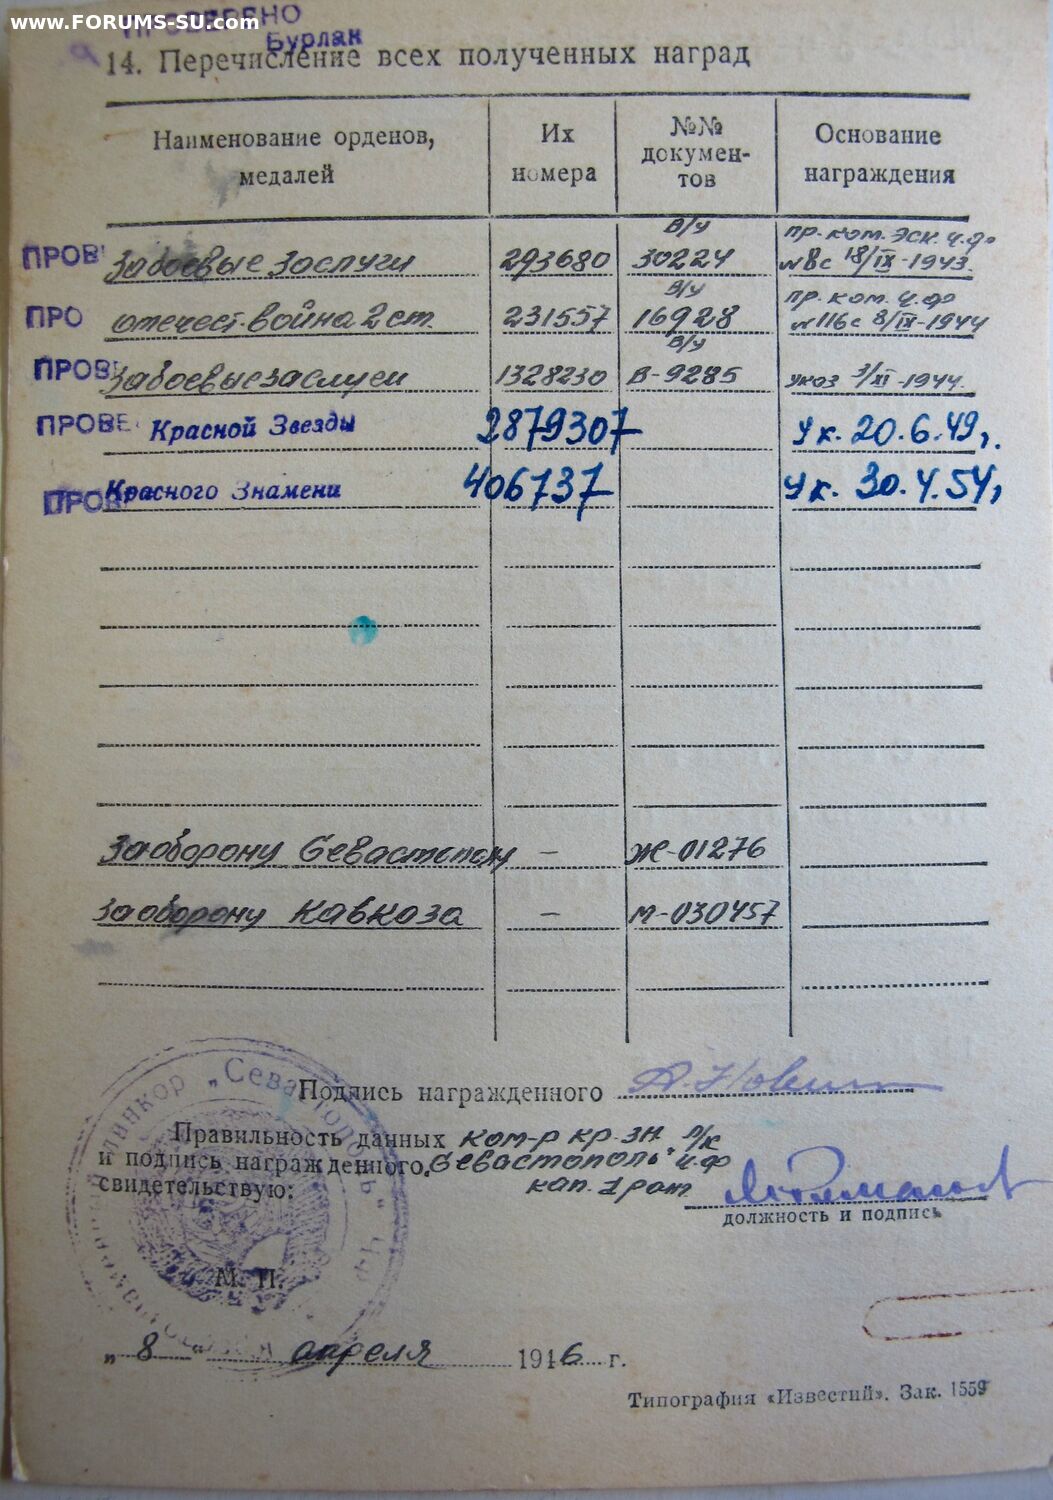 www.FORUMS-SU.com
ПРОВЕРЕНО
Бурлак
14. Перечисление всех полученных наград
Наименование орденов, медалей
Их номера
№№ докумен-тов
Основание награждения
ПРОВ За боевые заслуги 293680 в/у 30224 пр. ком. эск. ч.ф № 8с 18/IX-1943.
ПРО отечест. война 2 ст. 231557 в/у 16928 пр. ком. ч.ф № 116с 8/IX-1944
ПРОВ За боевые заслуги 1328230 в/у В-9285 указ 3/XI-1944.
ПРОВЕ Красной Звезды 2879307 Ук. 20.6.49,.
ПРОВ Красного Знамени 406737 Ук. 30.4.54,
За оборону Севастополя - Ж-01276
За оборону Кавказа - М-030457
Подпись награжденного
Правильность данных ком-р кр. зн. л/к
и подпись награжденного „Севастополь" ч.ф
свидетельствую: кап. 1 ранг
должность и подпись
линкор „Севастополь" ЧФ
М. П.
„ 8 " апреля 1946 г.
Типография «Известий». Зак. 1559